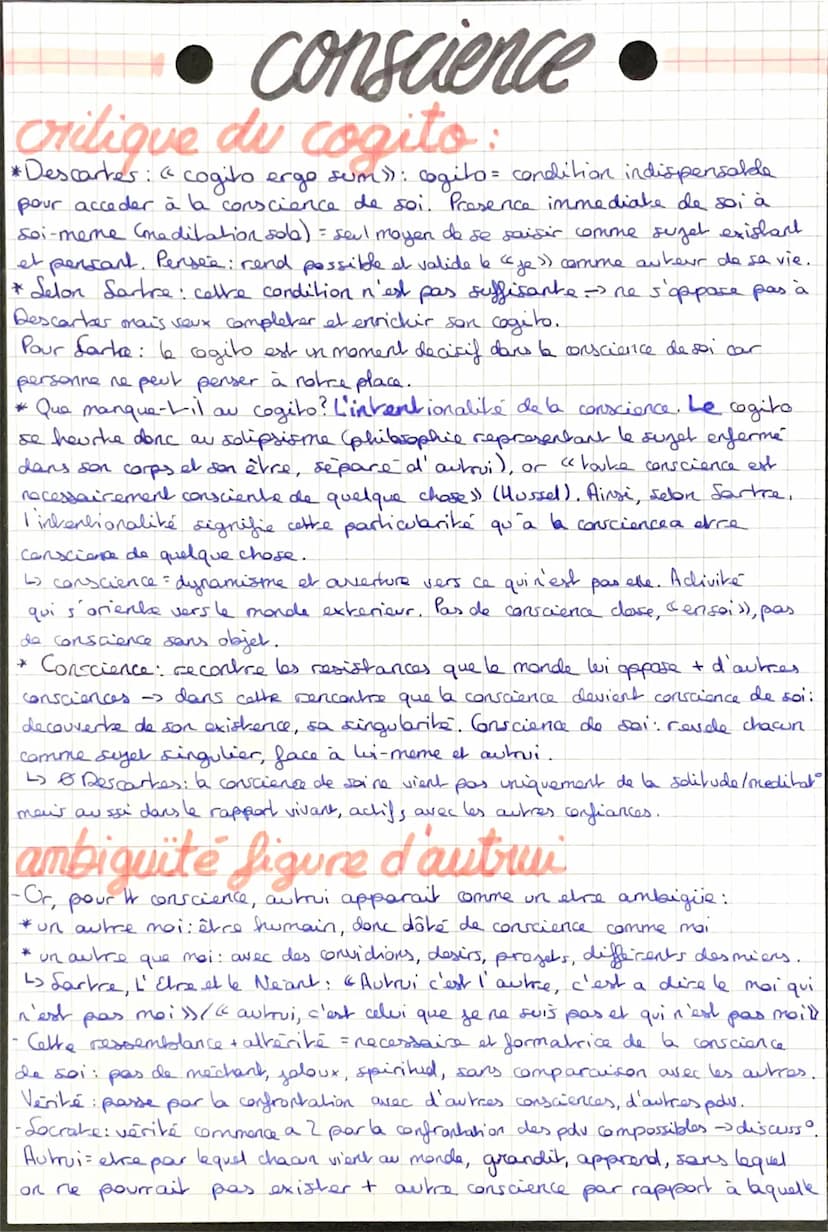 conscience
critique du cogito :
* Descartes : « cogito ergo sum » : cogito = condition indispensable
pour acceder à la conscience de soi. Presence immediate de soi à
soi-meme (meditation solo) = seul moyen de se saisir comme sujet existant
et pensant. Pensée : rend possible et valide le « je » comme auteur de sa vie.
* Selon Sartre : cette condition n'est pas suffisante → ne s'oppose pas à
Descartes mais veux completer et enrichir son cogito.
Pour Sartre : le cogito est un moment decisif dans la conscience de soi car
personne ne peut penser à notre place.
* Que manque-t-il au cogito ? L'intentionalité de la conscience. Le cogito
se heurte donc au solipsisme (philosophie representant le sujet enfermé
dans son corps et son être, séparé d'autrui), or « toute conscience est
necessairement consciente de quelque chose » (Hussel). Ainsi, selon Sartre,
l'intentionalité signifie cette particularité qu'a la conscience a etre
conscience de quelque chose.
↳ conscience = dynamisme et ouverture vers ce qui n'est pas elle. Activité
qui s'oriente vers le monde exterieur. Pas de conscience close, « en soi », pas
de conscience sans objet.
* Conscience : recontre les resistances que le monde lui oppose + d'autres
consciences → dans cette rencontre que la conscience devient conscience de soi :
decouverte de son existence, sa singularité. Conscience de soi : revele chacun
comme sujet singulier, face à lui-meme et autrui.
↳ Descartes : la conscience de soi ne vient pas uniquement de la solitude/meditat°
mais aussi dans le rapport vivant, actif, avec les autres confiances.
ambiguïté figure d'autrui
- Or, pour conscience, autrui apparait comme un etre ambigüe :
* un autre moi : être humain, donc dôté de conscience comme moi
* un autre que moi : avec des convictions, desirs, projets, différents des miens.
↳ Sartre, L'Etre et le Néant : « Autrui c'est l'autre, c'est a dire le moi qui
n'est pas moi » / « autrui, c'est celui que je ne suis pas et qui n'est pas moi »
- Cette ressemblance + altérité = necessaire et formatrice de la conscience
de soi : pas de méchant, jaloux, spirituel, sans comparaison avec les autres.
Vérité : passe par la confrontation avec d'autres consciences, d'autres pdv.
- Socrate : vérité commence a 2 par la confrontation des pdv compossibles → discuss°.
Autrui = etre par lequel chacun vient au monde, grandit, apprend, sans lequel
on ne pourrait pas exister + autre conscience par rapport à laquelle